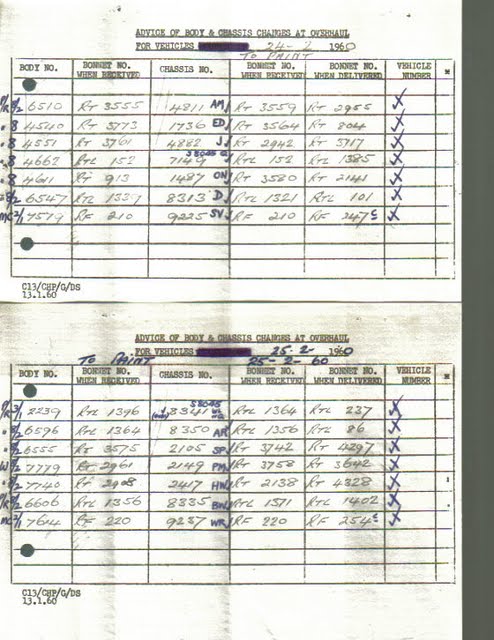 ADVICE OF BODY & CHASSIS CHANGES AT OVERHAUL
FOR VEHICLES 24-2 1960
TO PAINT
BODY NO. BONNET NO. WHEN RECEIVED CHASSIS NO. BONNET NO. BONNET NO. WHEN DELIVERED VEHICLE NUMBER
8/2 6510 RT 3555 4811 AM RT 3559 RT 2955 X
8 4540 RT 3773 1736 ED RT 3564 RT 804 X
8 4551 RT 3761 4882 J RT 2942 RT 3717 X
8 4662 RTL 152 7149 RTL 152 RTL 1385 X
8 4611 RT 913 1487 ON RT 3580 RT 2141 X
8/2 6547 RTL 1337 8313 D RTL 1321 RTL 101 X
2/1 7519 RF 210 9225 SV RF 210 RF 247c X
C13/CHP/G/DS
13.1.60
ADVICE OF BODY & CHASSIS CHANGES AT OVERHAUL
FOR VEHICLES 25-2- 1960
TO PAINT 25-2-60
BODY NO. BONNET NO. WHEN RECEIVED CHASSIS NO. BONNET NO. BONNET NO. WHEN DELIVERED VEHICLE NUMBER
3/1 2239 RTL 1396 8341 RTL 1364 RTL 237 X
8/2 6596 RTL 1364 8350 AR RTL 1356 RTL 86 X
8/2 6555 RT 3575 2105 SP RT 3742 RT 4297 X
7779 RT 2961 2149 PM RT 3758 RT 3642 X
7740 RT 2908 2417 HW RT 2138 RT 4328 X
8/2 6606 RTL 1356 8335 BN RTL 1571 RTL 1402 X
2/1 7614 RF 220 9237 WR RF 220 RF 254c X
C13/CHP/G/DS
13.1.60